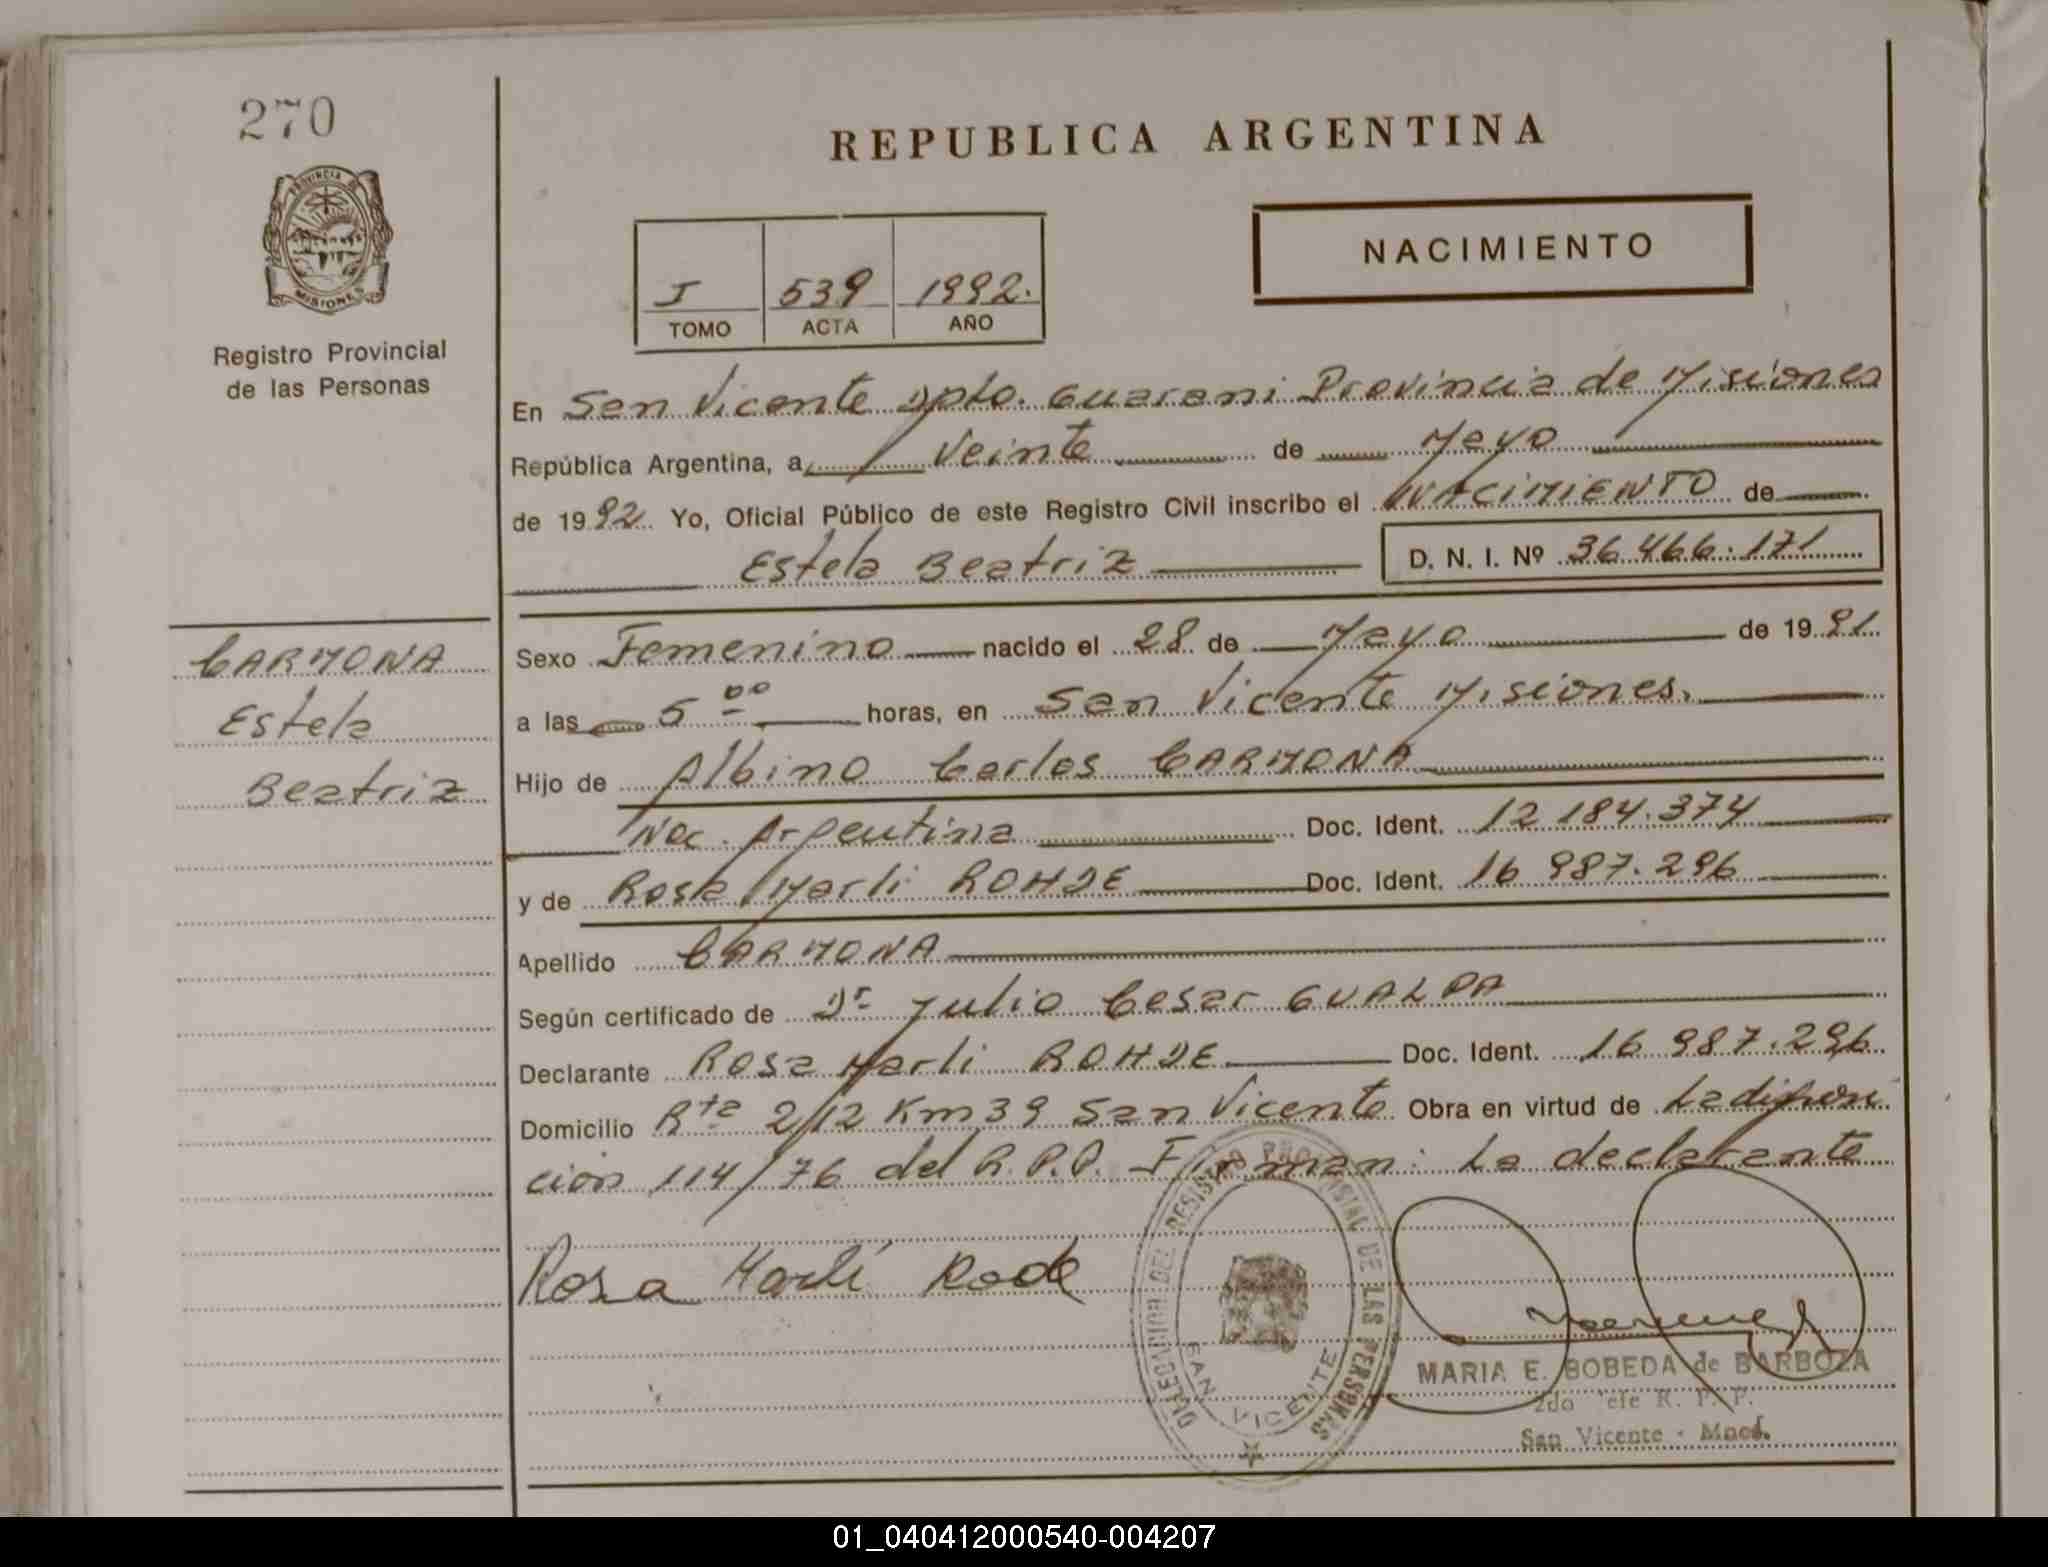 270
REPUBLICA ARGENTINA
PROVINCIA DE
MISIONES
NACIMIENTO
I 539 1992.
TOMO ACTA AÑO
Registro Provincial
de las Personas
En San Vicente Dpto. Guarani Provincia de Misiones
República Argentina, a Veinte de Mayo
de 1992 Yo, Oficial Público de este Registro Civil inscribo el NACIMIENTO de
Estela Beatriz D. N. I. Nº 36 466.171
CARMONA
Estela
Beatriz
Sexo Femenino nacido el 28 de Mayo de 1991
a las 5 00 horas, en San Vicente Misiones.
Hijo de Albino Carlos CARMONA
Nac. Argentina Doc. Ident. 12 184.374
y de Rosa Marli ROHDE Doc. Ident. 16 987.296
Apellido CARMONA
Según certificado de Dr Julio Cesar GUALPA
Declarante Rosa Marli ROHDE Doc. Ident. 16 987.296
Domicilio Rta 212 Km 39 San Vicente Obra en virtud de La
cion 114/76 del R.P.P. Firman: La declarante
Rosa Marlí Rode
DELEGACION DEL REGISTRO PROVINCIAL DE LAS PERSONAS
SAN VICENTE
MARIA E. BOBEDA de BARBOZA
2do Jefe R. P. P.
San Vicente - Mnes.
01_040412000540-004207